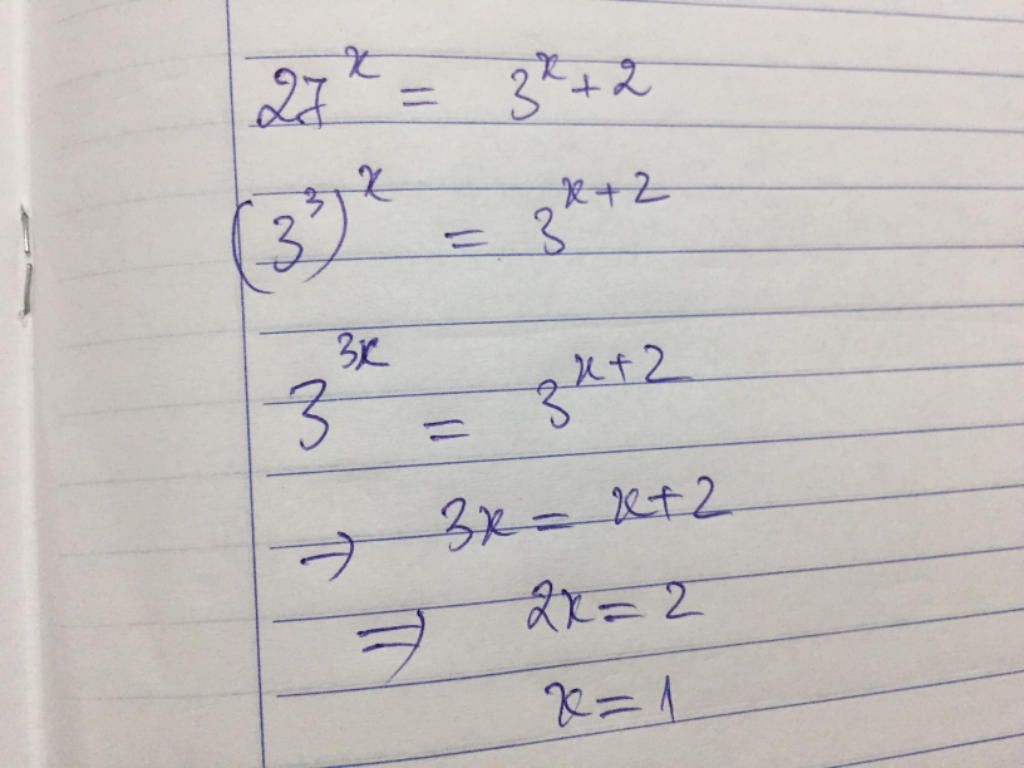 27^x = 3^x+2
(3^3)^x = 3^x+2
3^3x = 3^x+2
→ 3x = x+2
⇒ 2x = 2
x = 1